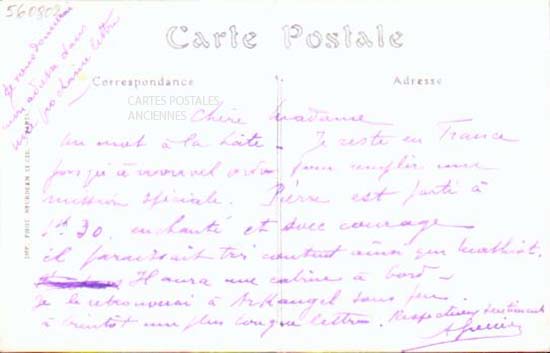 560802
Je vous donnerai
mon adresse dans
ma prochaine lettre
Carte Postale
Correspondance
Adresse
CARTES POSTALES
ANCIENNES
Chère Madame
un mot à la hâte - Je reste en France
jusqu'à nouvel ordre pour remplir une
mission spéciale. Pierre est parti à
1h 30. enchanté et avec courage
il paraissait très content ainsi que
Il aura une cabine à bord -
Je le retrouverai à Arkangel sous peu.
à bientôt une plus longue lettre. Respectueux sentiments
IMP. PHOT. NEURDEIN ET CIE. PARIS